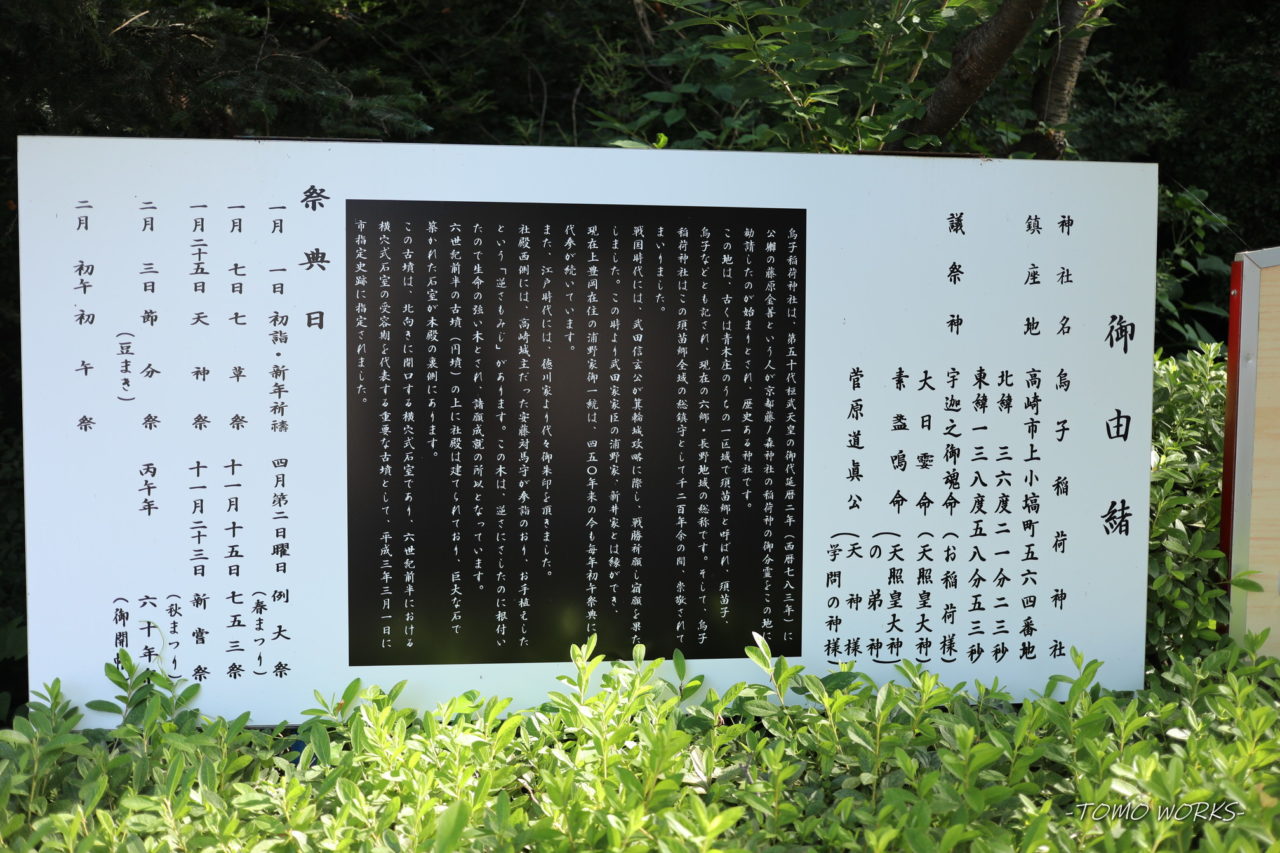 御由緒
神社名 烏子稲荷神社
鎮座地 高崎市上小塙町五六四番地
北緯 三六度二一分二三秒
東緯一三八度五八分五三秒
議祭神 宇迦之御魂命(お稲荷様)
大日孁命(天照皇大神)
素盞嗚命(天照皇大神の弟神)
菅原道眞公(天神様)
(学問の神様)
烏子稲荷神社は、第五十代桓武天皇の御代延暦二年(西暦七八三年)に
公卿の藤原金善という人が京都藤ノ森神社の稲荷神の御分霊をこの地に
勧請したのが始まりとされ、歴史ある神社です。
この地は、古くは青木庄のうちの一区域で須苗郷と呼ばれ、須苗子
烏子などとも記され、現在の六郷・長野地域の総称です。そして、烏子
稲荷神社はこの須苗郷全域の総鎮守として千二百年余の間、崇敬されて
まいりました。
戦国時代には、武田信玄公が箕輪城攻略に際し、戦勝祈願し宿願を果た
しました。この時より武田家家臣の浦野家、新井家とは縁ができ、
現在上豊岡在住の浦野家御一統は、四五〇年来の今も毎年初午祭典に
代参が続いています。
また、江戸時代には、徳川家より代々御朱印を頂きました。
社殿西側には、高崎城主だった安藤対馬守が参詣のおり、お手植えした
という「逆さもみじ」があります。この木は、逆さにさしたのに根付い
たので生命の強い木とされ、諸願成就の所以となっています。
六世紀前半の古墳(円墳)の上に社殿は建てられており、巨大な石で
築かれた石室が本殿の裏側にあります。
この古墳は、北向きに開口する横穴式石室であり、六世紀前半における
横穴式石室の受容期を代表する重要な古墳として、平成三年三月一日に
市指定史跡に指定されました。
祭典日
一月 一日 初詣・新年祈禱 四月第二日曜日 例大祭
(春まつり)
一月 七日 七草祭 十一月十五日 七五三祭
一月二十五日 天神祭 十一月二十三日 新嘗祭
(秋まつり)
二月 三日 節分祭 丙午年 六十年
(豆まき) (御開
二月 初午 初午祭
-TOMO WORKS-